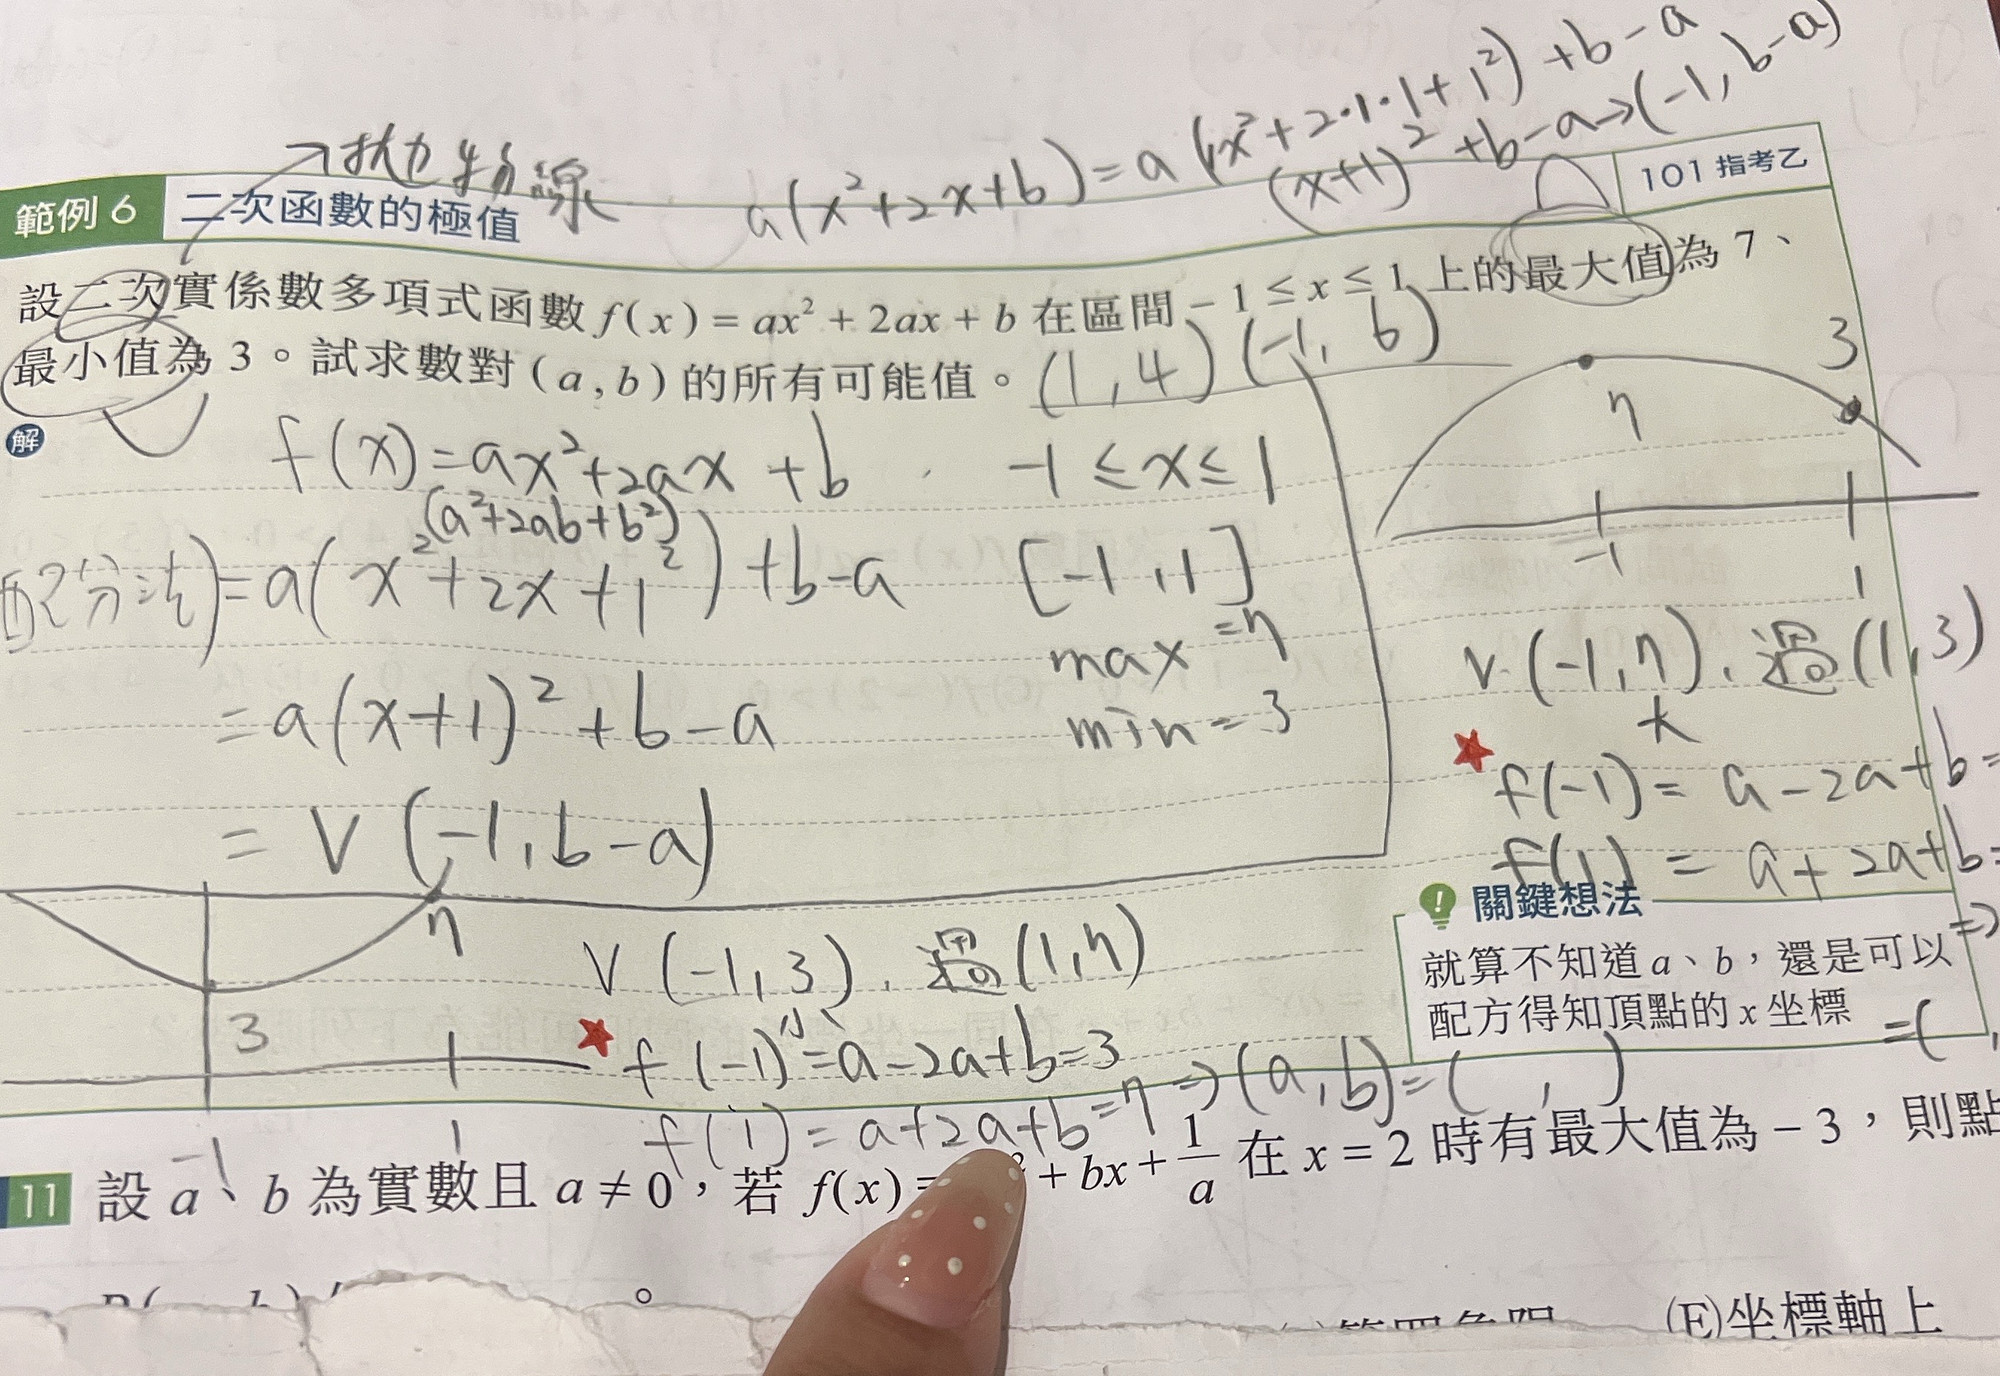 a(x²+2x+b)=a(x²+2·1·1+1²)+b-a
(x+1)²+b-a→(-1, b-a)
→拋物線
範例 6 二次函數的極值
101 指考乙
設二次實係數多項式函數 f(x) = ax² + 2ax + b 在區間 -1 ≤ x ≤ 1 上的最大值為 7、
最小值為 3。試求數對 (a, b) 的所有可能值。(1, 4) (-1, 6)
解
f(x)=ax²+2ax+b -1≤x≤1
(a²+2ab+b²)
配分法)=a(x²+2x+1²)+b-a [-1,1]
max=7
=a(x+1)²+b-a min=3
=V(-1, b-a)
3
7
-1 1
V(-1,7), 過(1,3)
大
f(-1)=a-2a+b=
f(1)=a+2a+b=
⇒
=( ,
7
3
-1 1
V(-1,3), 過(1,7)
小
f(-1)=a-2a+b=3
f(1)=a+2a+b=7⇒(a,b)=( , )
關鍵想法
就算不知道 a、b,還是可以
配方得知頂點的 x 坐標
11 設 a、b 為實數且 a ≠ 0,若 f(x) = ² + bx + 1/a 在 x = 2 時有最大值為 -3,則點
(E)坐標軸上